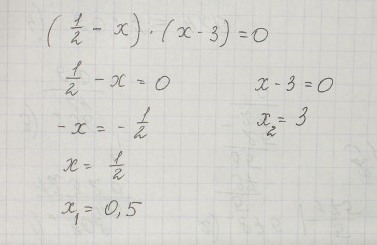 (1/2 - x) · (x - 3) = 0
1/2 - x = 0
x - 3 = 0
- x = - 1/2
x₂ = 3
x = 1/2
x₁ = 0,5